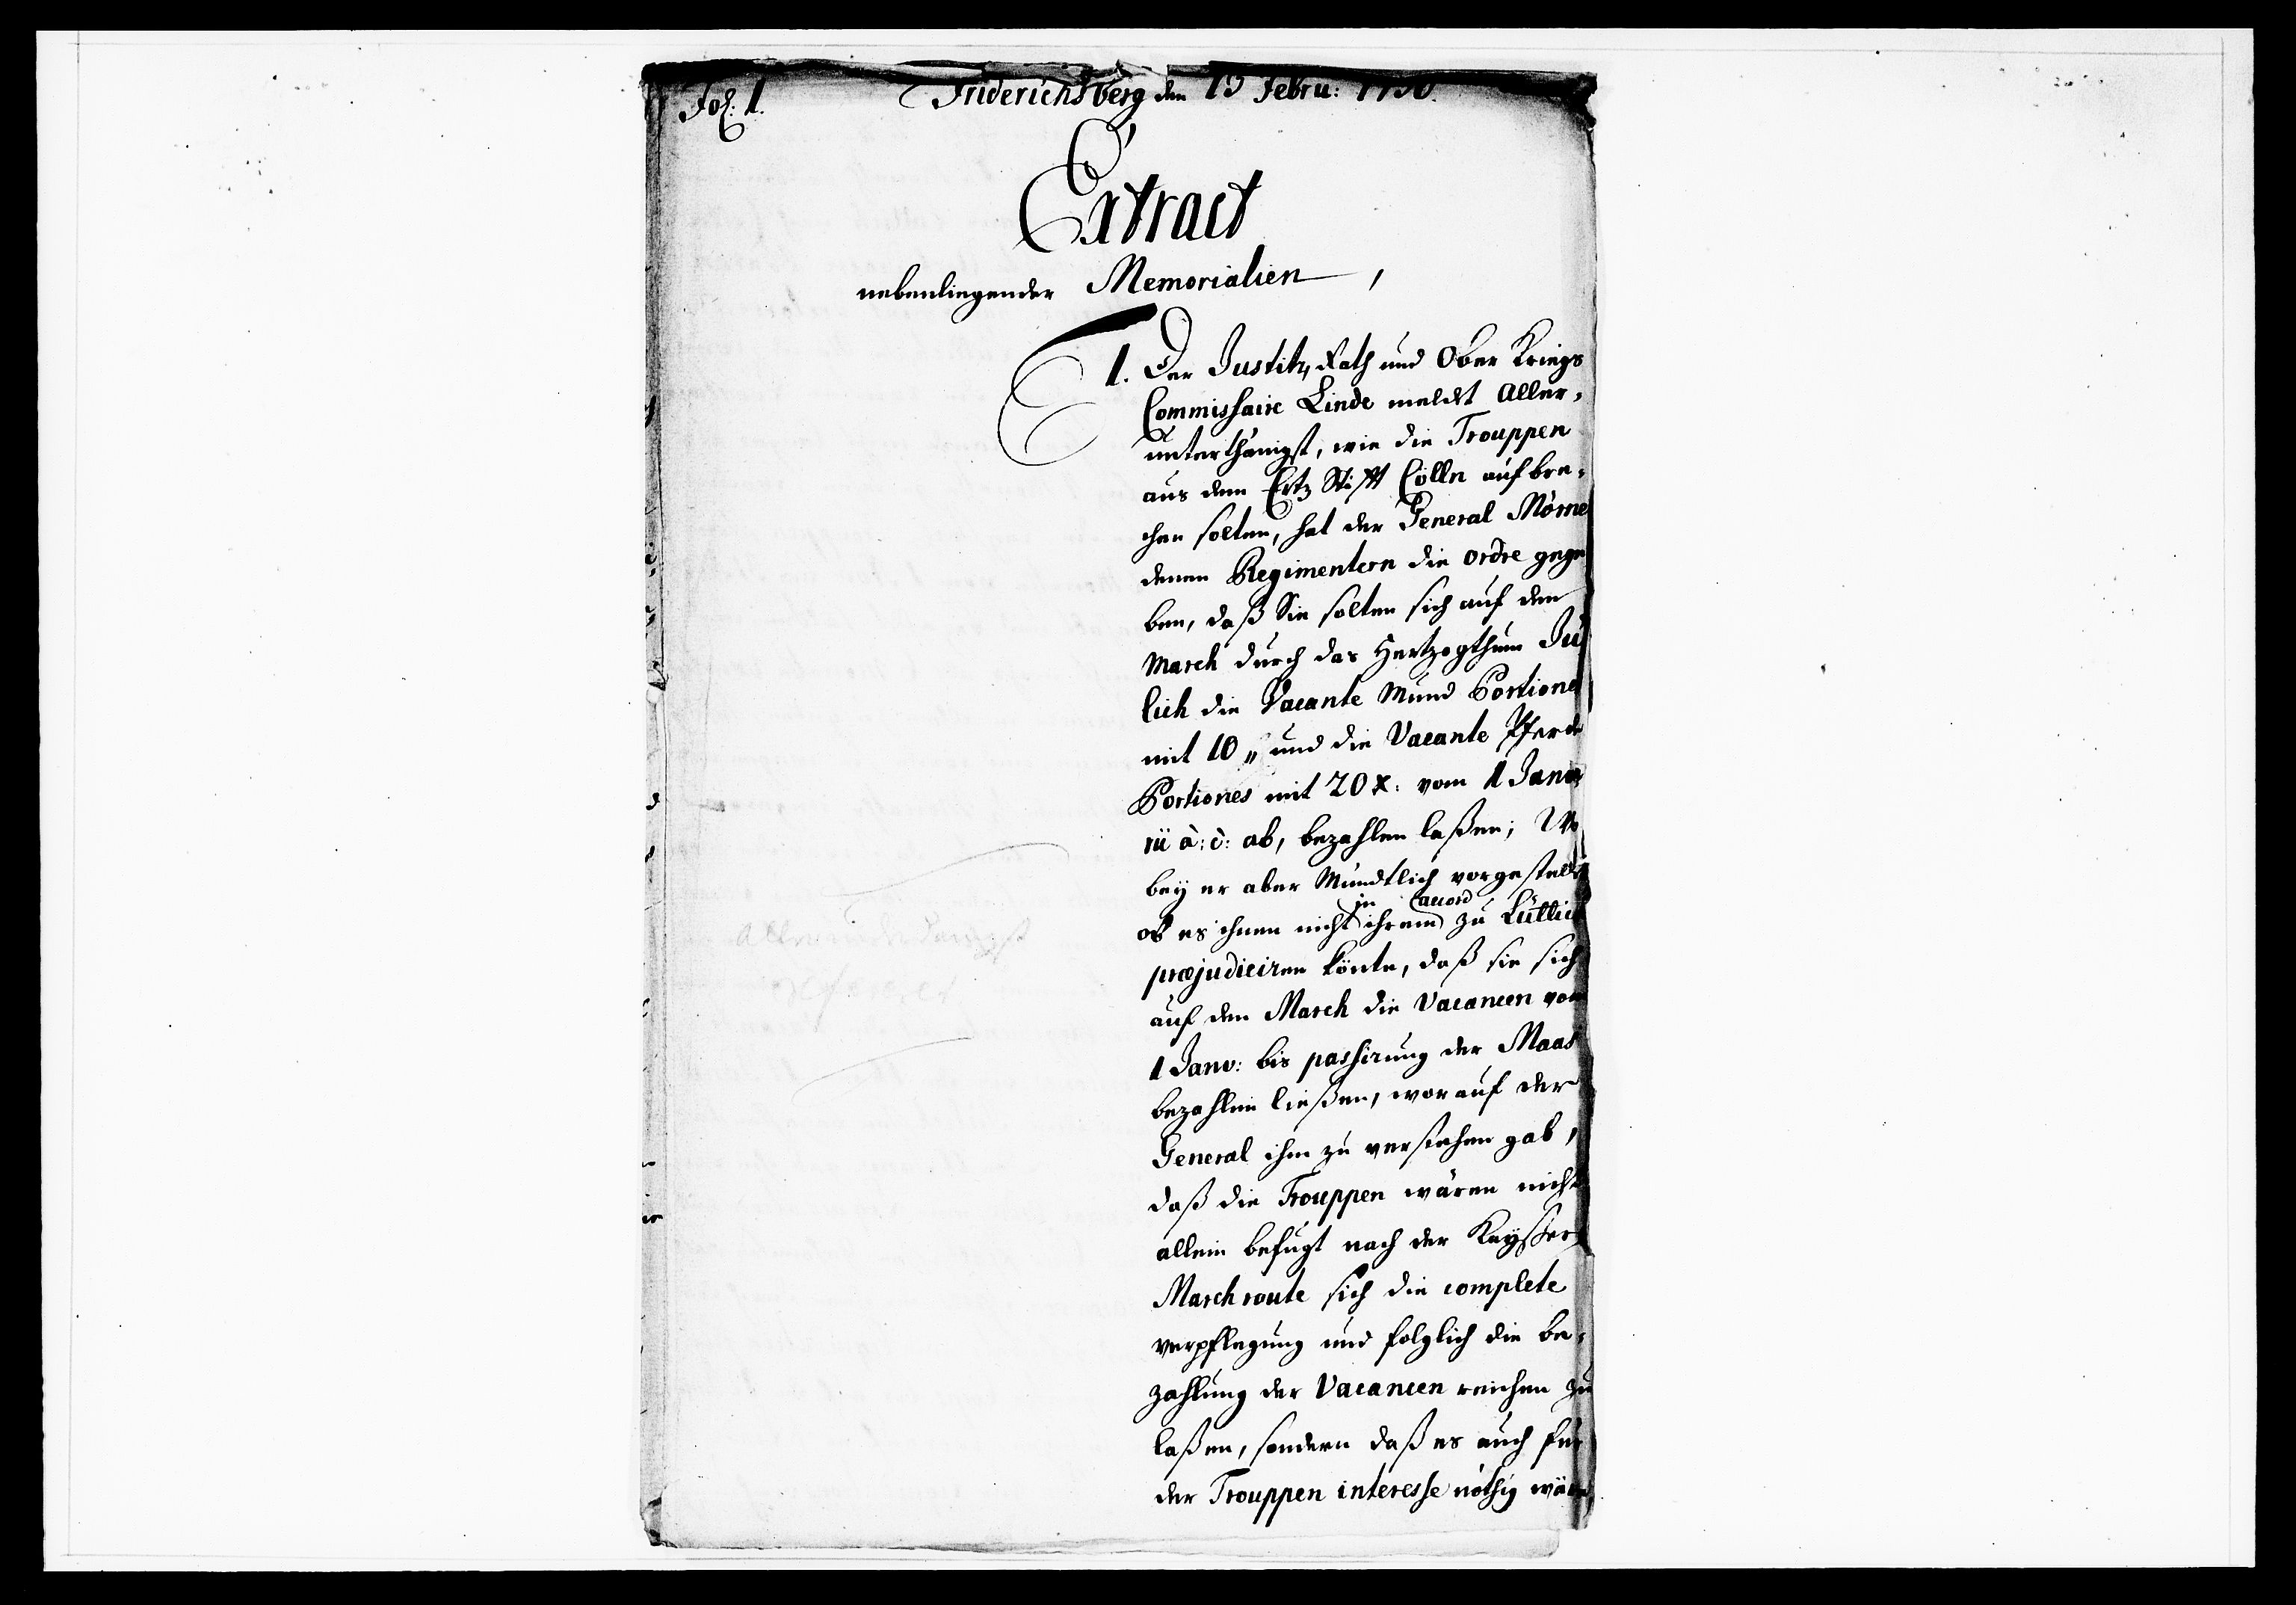 Fol: 1.
Friderichsberg den 13 Febru: 1736.
Extract
nebenliegender Memorialien,
1. Der Justitz Rath und Ober Kriegs
Commissaire Linde meldt Aller-
unterthänigst, wie die Trouppen
aus dem Ertz Stifft Cölln aufbre-
chen solten, hat der General Mörne
denen Regimentern die ordre gege
ben, daß Sie solten sich auf den
March durch das Hertzogthum Jü
lich die Vacante Mund Portiones
mit 10 „ und die Vacante Pferde
Portiones mit 20 x: vom 1 Janua
rii à: c: ab, bezahlen laßen; Wo
bey er aber Mündtlich vorgestellt
in accord
ob es ihnen nicht ihrem zu Lüttich
præjudiciren könte, daß sie sich
auf den March die Vacancen vom
1 Janv: bis passirung der Maas
bezahlen ließen, worauf der
General ihm zu verstehen gab,
daß die Trouppen wären nicht
allein befugt nach der Kaysser
Marchroute sich die complete
verpflegung und folglich die be-
zahlung der Vacancen reichen zu
laßen, sondern daß es auch für
der Trouppen interesse nöthig wäre